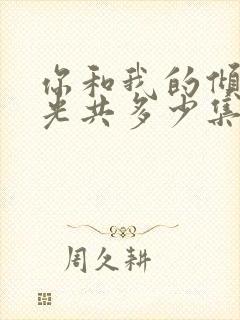 你和我的倾
光共多少集
周久耕